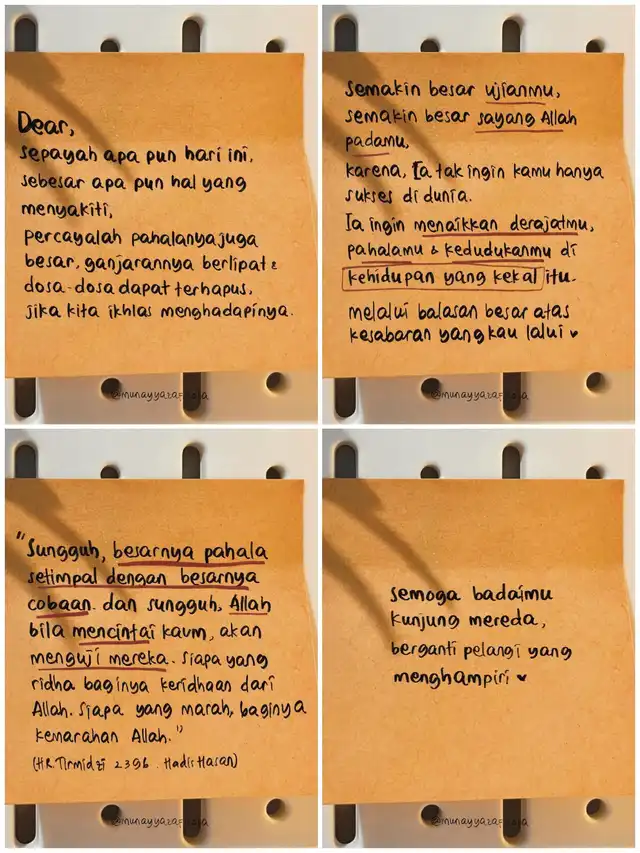 Dear,
sepayah apa pun hari ini,
sebesar apa pun hal yang
menyakiti,
percayalah pahalanya juga
besar, ganjarannya berlipat &
dosa-dosa dapat terhapus,
jika kita ikhlas menghadapinya.
semakin besar ujianmu,
semakin besar sayang Allah
padamu,
karena, Ia tak ingin kamu hanya
sukses di dunia.
Ia ingin menaikkan derajatmu,
pahalamu & kedudukanmu di
kehidupan yang kekal itu.
melalui balasan besar atas
kesabaran yang kau lalui ♥
"Sungguh, besarnya pahala
setimpal dengan besarnya
cobaan. dan sungguh, Allah
bila mencintai kaum, akan
menguji mereka. siapa yang
ridha baginya keridhaan dari
Allah. siapa yang marah, baginya
kemarahan Allah."
(HR. Tirmidzi 2396. Hadis Hasan)
semoga badaimu
kunjung mereda,
berganti pelangi yang
menghampiri ♥